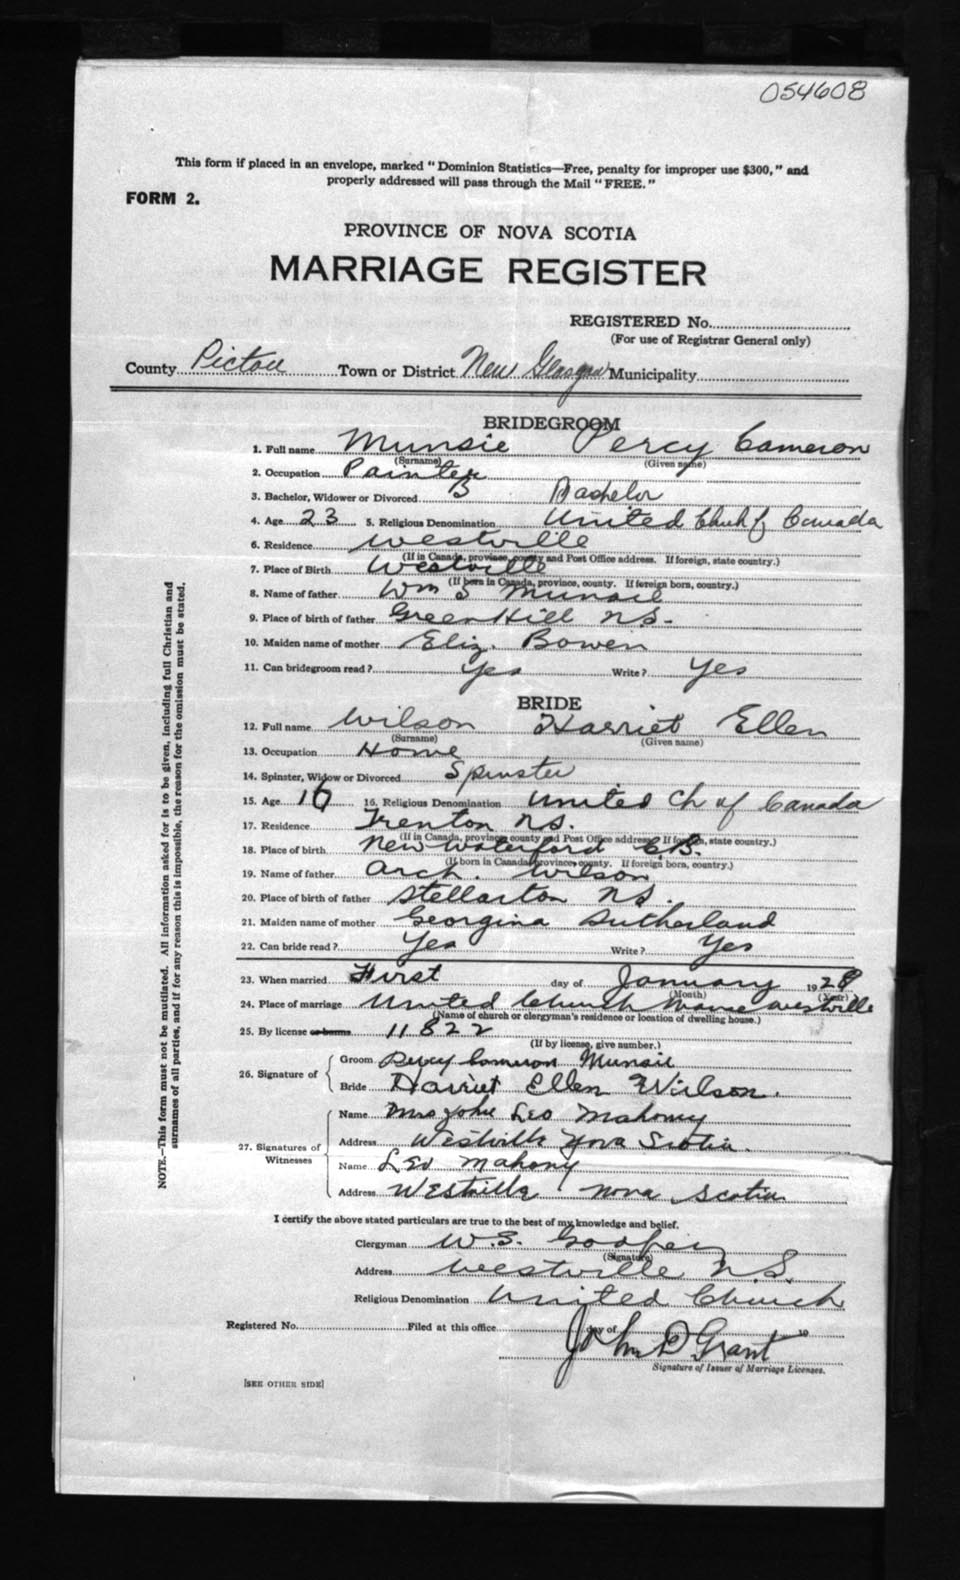 054608
This form if placed in an envelope, marked "Dominion Statistics—Free, penalty for improper use $300," and
properly addressed will pass through the Mail "FREE."
FORM 2.
PROVINCE OF NOVA SCOTIA
MARRIAGE REGISTER
REGISTERED No.
(For use of Registrar General only)
County Pictou Town or District New Glasgow Municipality
BRIDEGROOM
1. Full name Munsie Percy Cameron
(Surname) (Given name)
2. Occupation Painter
3. Bachelor, Widower or Divorced B Bachelor
4. Age 23 5. Religious Denomination United Chuh of Canada
6. Residence Westville
(If in Canada, province, county and Post Office address. If foreign, state country.)
7. Place of Birth Westville
(If born in Canada, province, county. If foreign born, country.)
8. Name of father Wm S Munsie
9. Place of birth of father Green Hill N.S.
10. Maiden name of mother Eliz. Bowen
11. Can bridegroom read? Yes Write? Yes
BRIDE
12. Full name Wilson Harriet Ellen
(Surname) (Given name)
13. Occupation Home
14. Spinster, Widow or Divorced Spinster
15. Age 16 16. Religious Denomination United Ch of Canada
17. Residence Trenton N.S.
(If in Canada, province, county and Post Office address. If foreign, state country.)
18. Place of birth New Waterford C.B.
(If born in Canada province, county. If foreign born, country.)
19. Name of father Arch. Wilson
20. Place of birth of father Stellarton N.S.
21. Maiden name of mother Georgina Sutherland
22. Can bride read? Yes Write? Yes
23. When married First day of January 1928
(Month) (Year)
24. Place of marriage United Church Manse Westville
(Name of church or clergyman's residence or location of dwelling house.)
25. By license or banns 11822
(If by license, give number.)
26. Signature of
Groom Percy Cameron Munsie
Bride Harriet Ellen Wilson.
27. Signatures of Witnesses
Name Mrs John Leo Mahony
Address Westville Nova Scotia.
Name Leo Mahony
Address Westville Nova Scotia
I certify the above stated particulars are true to the best of my knowledge and belief.
Clergyman W.S. Godfrey
(Signature)
Address Westville N.S.
Religious Denomination United Church
Registered No. Filed at this office day of 19
John D Grant
Signature of Issuer of Marriage Licenses.
[SEE OTHER SIDE]
NOTE.—This form must not be mutilated. All information asked for is to be given, including full Christian and
surnames of all parties, and if for any reason this is impossible, the reason for the omission must be stated.